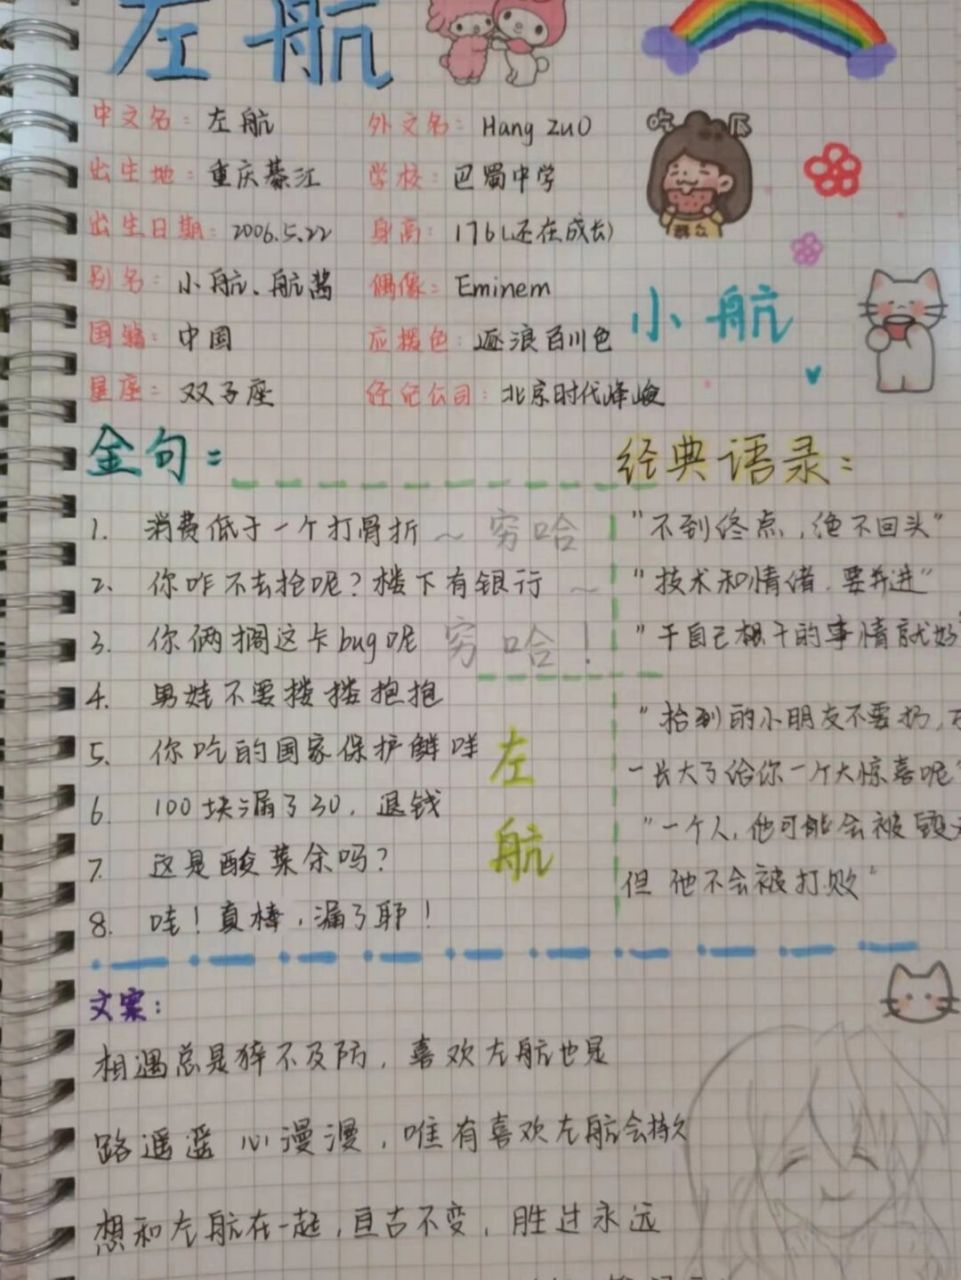 左航
中文名：左航 外文名：Hang Zuo
吃瓜
出生地：重庆綦江 学校：巴蜀中学
群众
出生日期：2006.5.22 身高：176(还在成长)
别名：小航、航酱 偶像：Eminem
小航
国籍：中国 应援色：逐浪百川色
星座：双子座 经纪公司：北京时代峰峻
金句：
1. 消费低于一个打骨折～穷哈
2. 你咋不去抢呢？楼下有银行～
3. 你俩搁这卡bug呢 穷哈！
4. 男娃不要搂搂抱抱
5. 你吃的国家保护鲜咩
6. 100块漏了30，退钱
7. 这是酸菜余吗？
8. 哇！真棒，漏了耶！
左航
经典语录：
"不到终点，绝不回头"
"技术和情绪，要并进"
"干自己想干的事情就好"
"拾到的小朋友不要扔，万
一长大了给你一个大惊喜呢"
"一个人，他可能会被毁灭
但他不会被打败"
文案：
相遇总是猝不及防，喜欢左航也是
路遥遥 心漫漫，唯有喜欢左航会持久
想和左航在一起，亘古不变，胜过永远